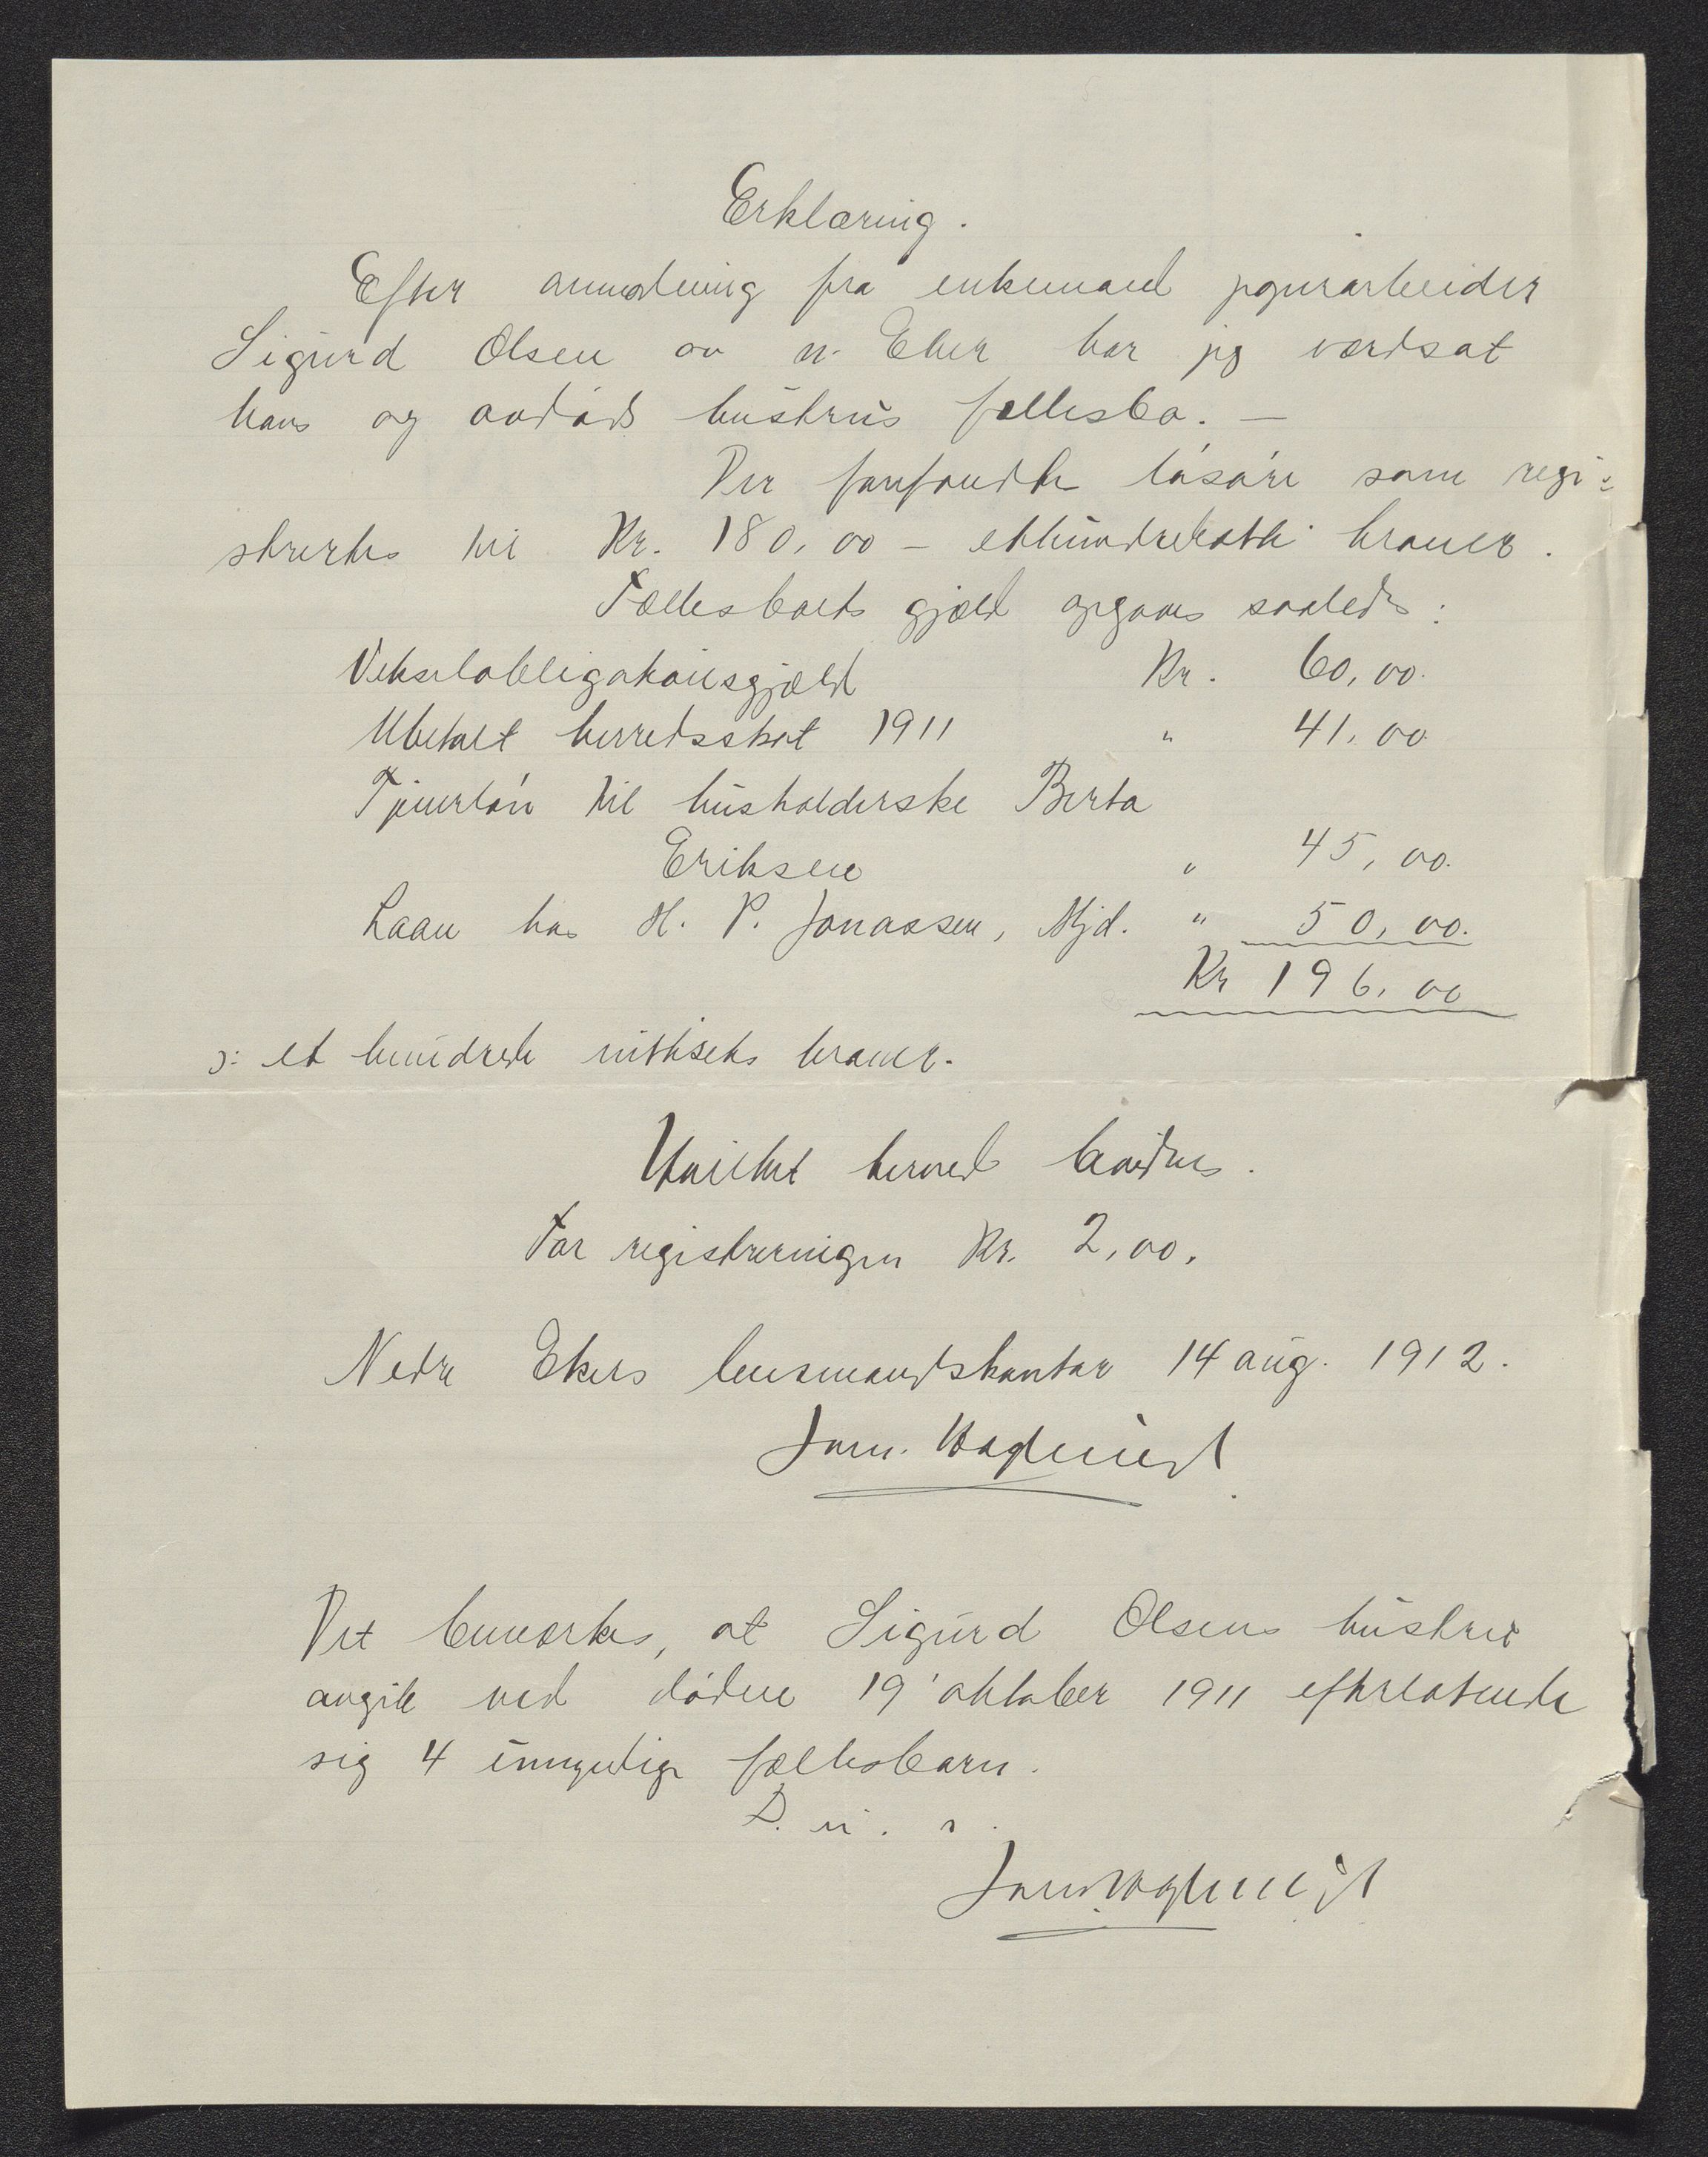 Erklæring.
Efter anmodning fra enkemand papirarbeider
Sigurd Olsen av n. Eker har jeg værdsat
hans og avdøde hustrus fællesbo. –
Der forefandtes løsøre som regi-
strertes til Kr. 180,00 – ethundredeotti kroner.
Fællesboets gjæld opgaves saaledes:
Vekselobligationsgjæld Kr. 60,00.
Ubetalt herredsskat 1911 " 41,00
Tjenerløn til husholderske Berta
Eriksen " 45,00.
Laan hos H. P. Jonassen, Mjd. " 50,00.
Kr 196,00
ɔ: et hundrede nittiseks kroner.
Utvistet herved bevidnes.
For registreringen Kr. 2,00.
Nedre Ekers lensmandskontor 14 aug. 1912.
Det bemerkes, at Sigurd Olsens hustru
avgik ved døden 19' oktober 1911 efterlatende
sig 4 umyndige fællesbarn.
D. u. s.